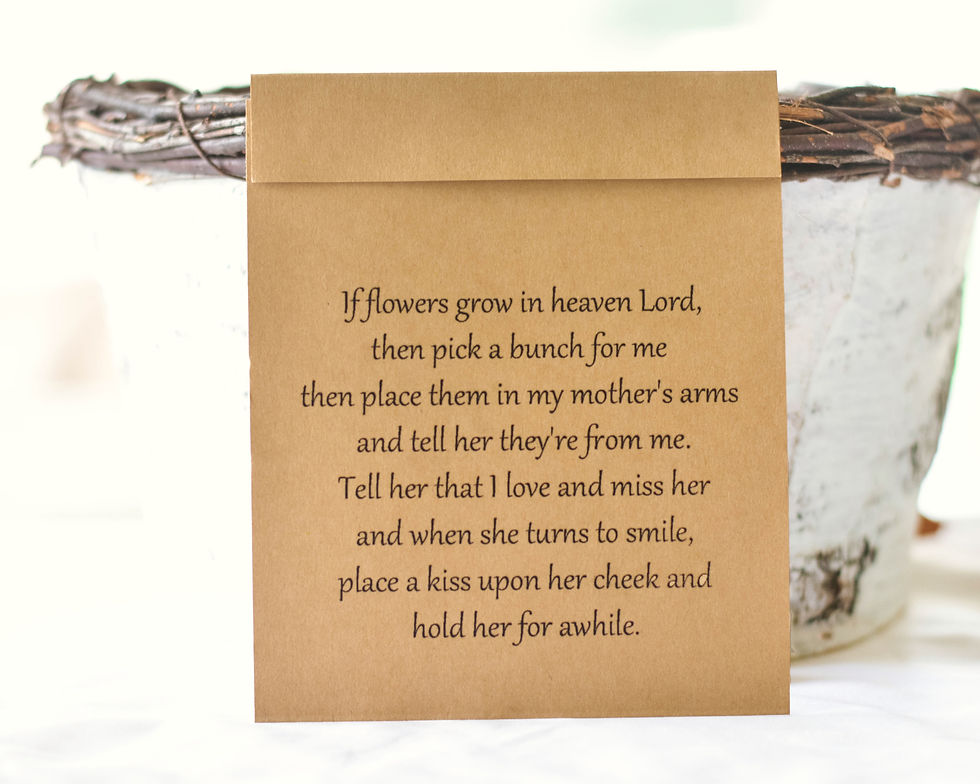 If flowers grow in heaven Lord,
then pick a bunch for me
then place them in my mother's arms
and tell her they're from me.
Tell her that I love and miss her
and when she turns to smile,
place a kiss upon her cheek and
hold her for awhile.